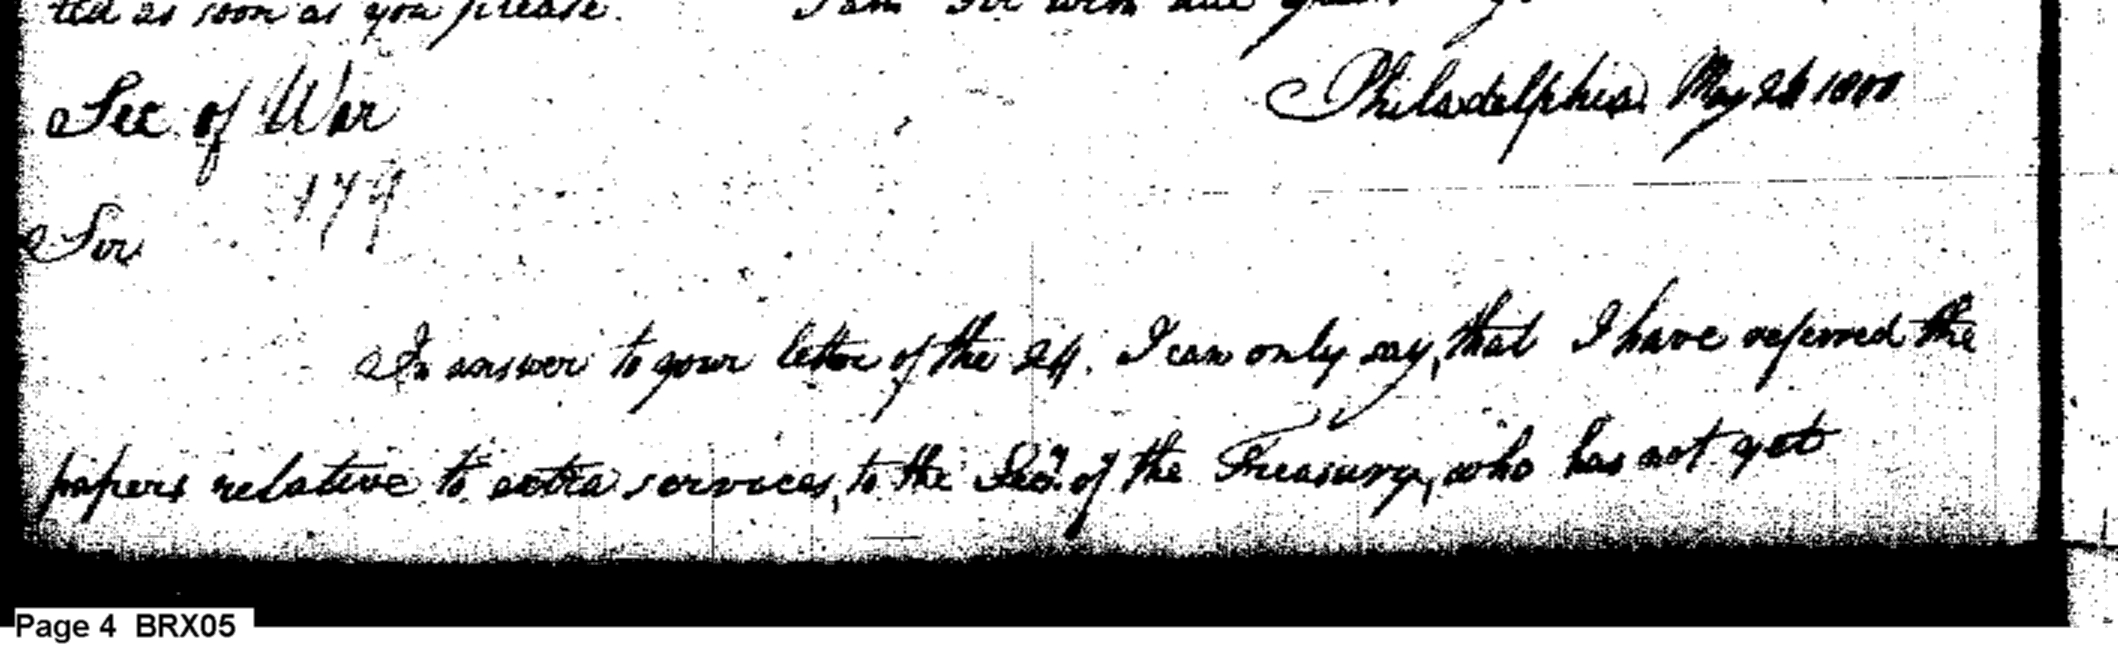 ted as soon as you please. I am Sir with due
Sec of War Philadelphia May 26 1800
179
Sir
In answer to your letter of the 24. I can only say, that I have referred the
papers relative to extra services, to the Secy. of the Treasury, who has not yet
Page 4 BRX05